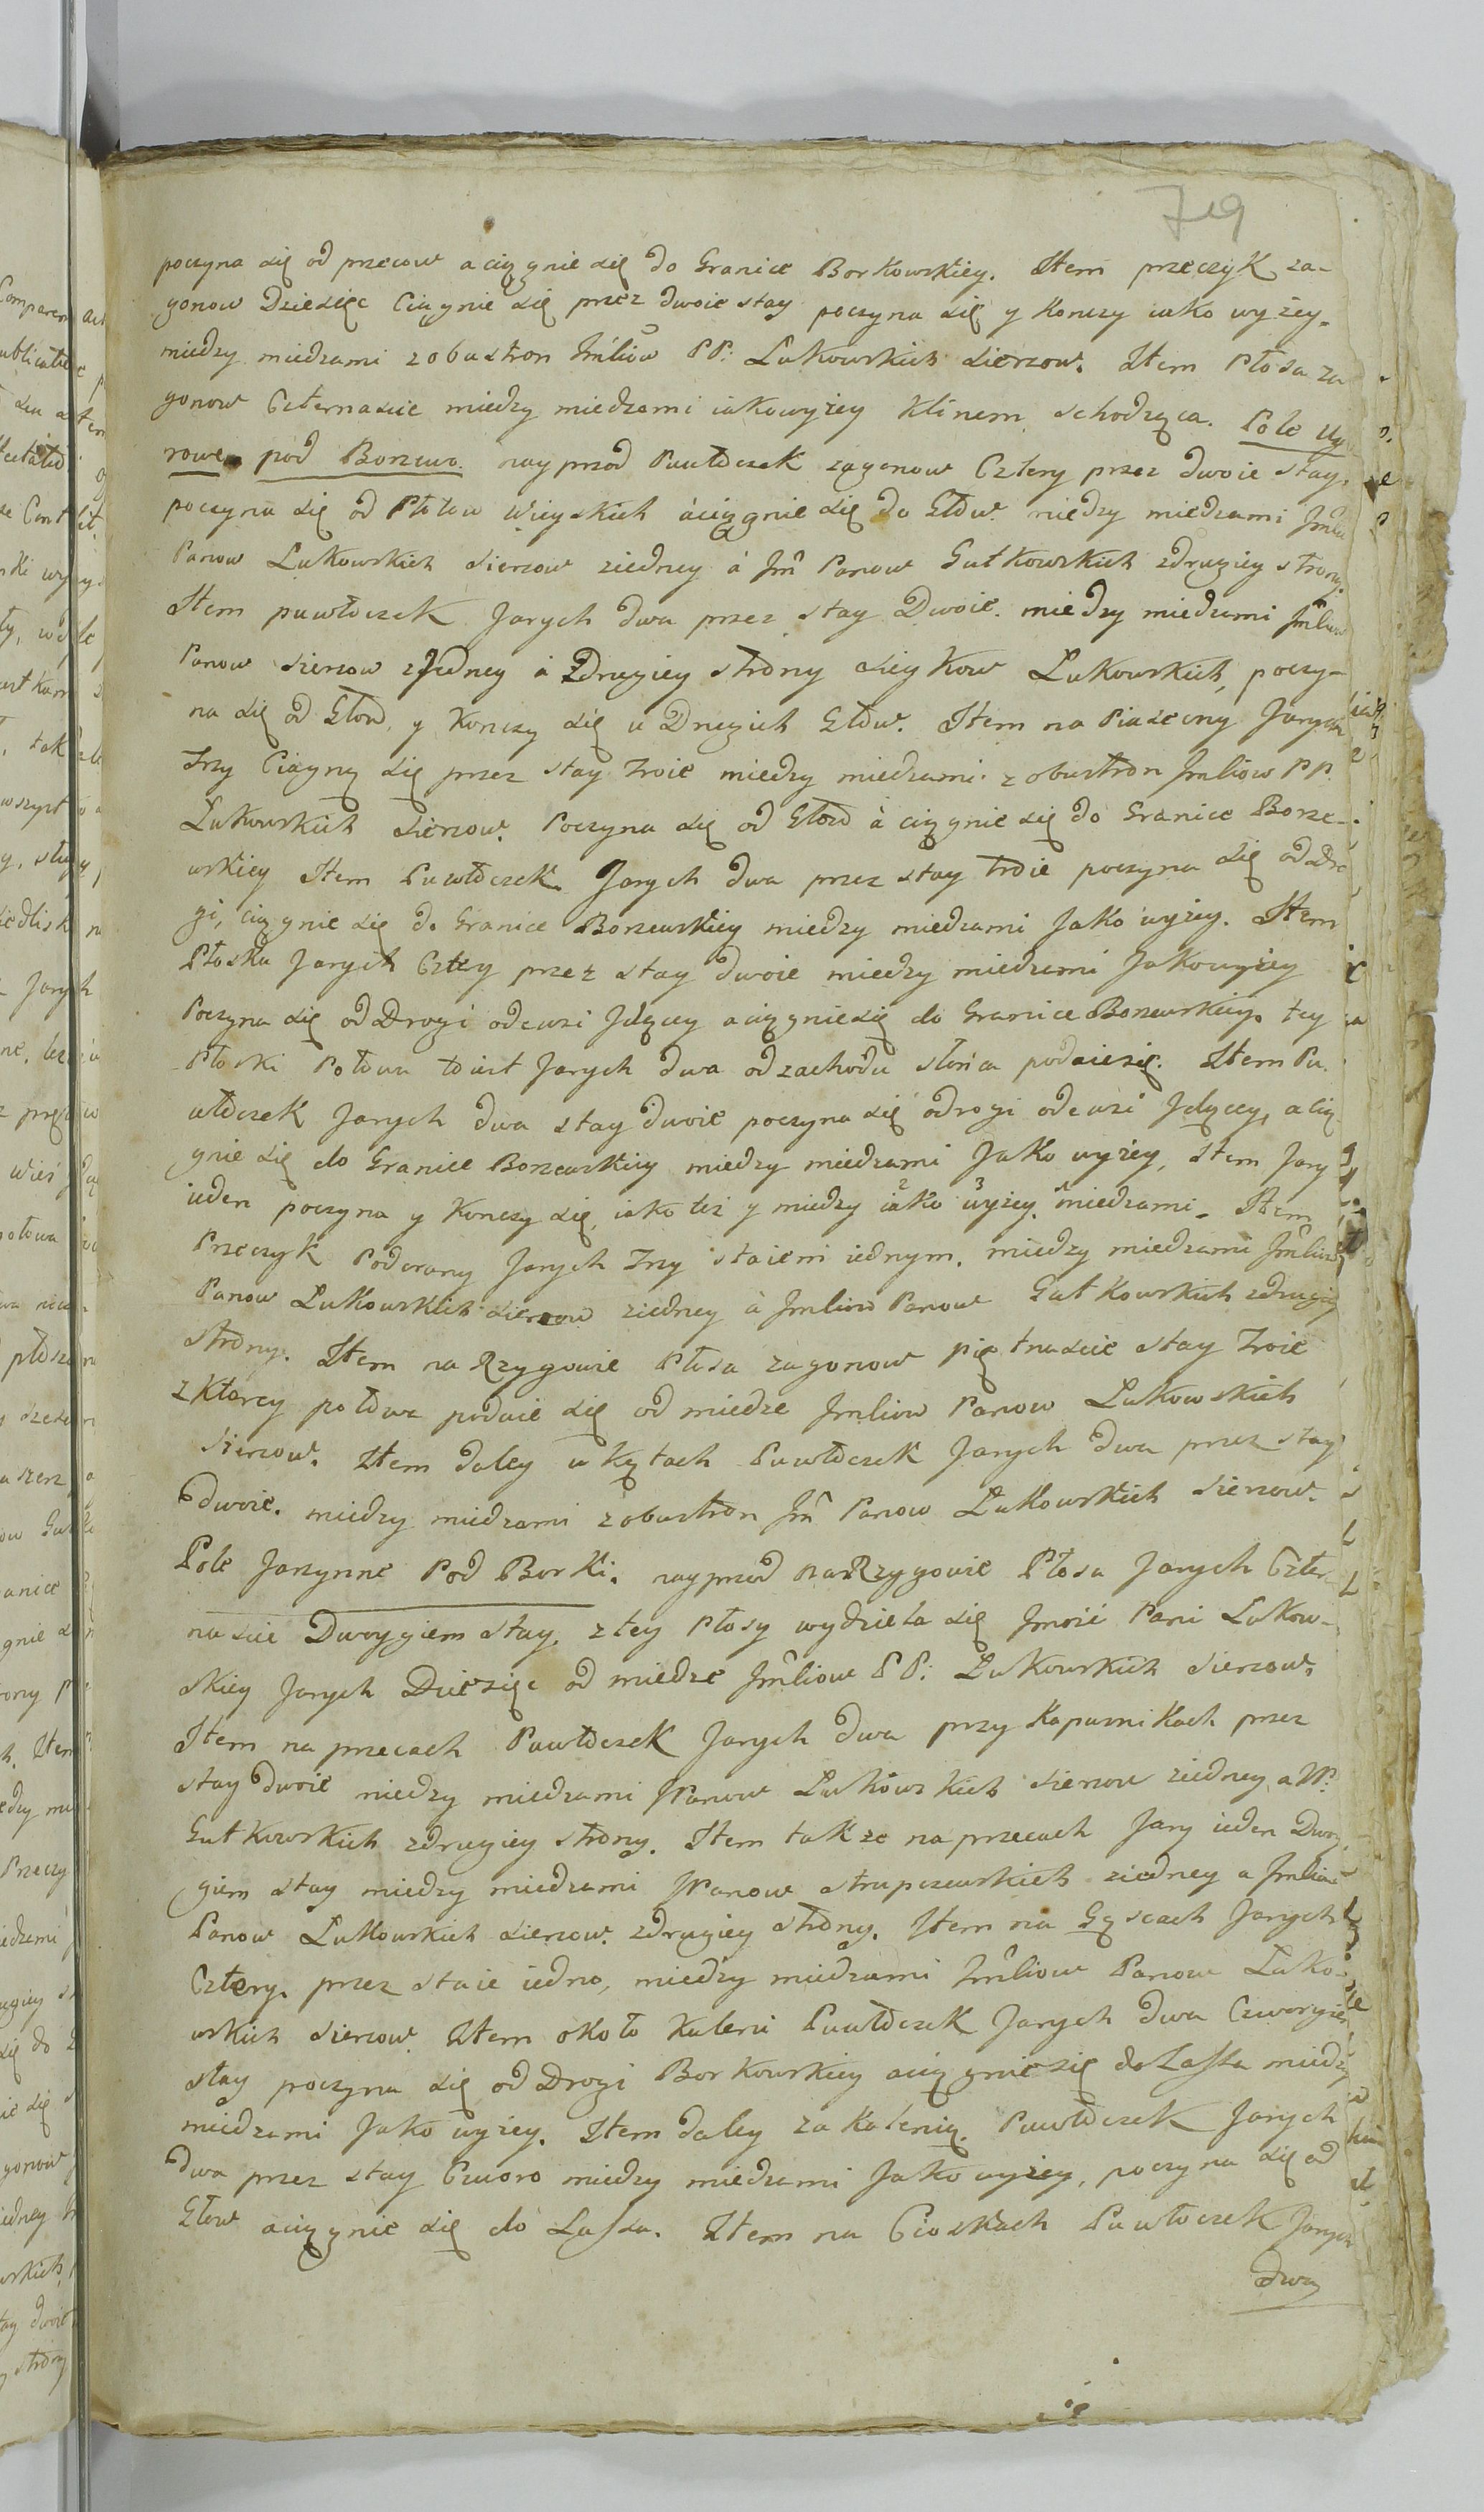 719
poczyna się od przecow a ciągnie się do Granice Borkowskiey. Item przeczyk za-
gonow Dziesięc Ciągnie się przez dwoie stay poczyna się y Konczy iako wyżey.
miedzy miedzami zobustron Jmciow PP: Łukowskich Siercow. Item Płosa za
gonow Czternascie miedzy miedzami iakowyżey Klinem schodząca. Pole
rowe pod Borzewo. nayprzod Pawłoczek zagonow Cztery przez dwoie stay,
poczyna się od Płotow Wieyskich áciągnie się do Głow. miedzy miedzami
Panow Łukowskich Siercow ziedney á Jm Panow Gutkowskich zdrugiey strony.
Item pawłoczek Jarych dwa przez stay Dwoie. miedzy miedzami Jmciow
Panow Siercow zJedney á Zdrugiey strony Sieykow Łukowskich, poczy-
na się od Głow, y Konczy się u Drugich Głow. Item na Piaseczny Jarych
Trzy Ciągną się przez stay Troie miedzy miedzami. z obustron Jmciow PP.
Łukowskich Siercow. Poczyna się od Głow à ciągnie się do Granice Borze-
wskiey Item Pawłoczek. Jarych dwa przez stay troie poczyna się od Dro
gi, ciągnie się do Granice Borzewskiey miedzy miedzami Jako wyżey. Item
Płoska Jarych Cztery przez stay dwoie miedzy miedzami Jakowyżey
Poczyna się od Drogi odewsi Jdącey aciągniesię do Granice Borzewskiey. tey
Płoski Połowa toiest Jarych dwa odzachodu słońca podaiesię. Item Pa
włoczek Jarych dwa stay dwoie poczyna się odrogi odewsi Jdącey, a cią
gnie się do Granice Borzewskiey miedzy miedzami Jako wyżey, Item Jary
ieden poczyna y Konczy się, iako też y miedzy iako wyżey. miedzami. Item
Przeczyk Podorany Jarych Trzy staiem iednym. miedzy miedzami Jmciow
Panow Łukowskich Siercow ziedney à Jmciow Panow Gutkowskich zdrugiey
strony. Item na Rzygowie Płosa zagonow piętnascie stay Troie
zKtorey połowa podaie się od miedze Jmciow Panow Łukowskich
Siercow. Item daley w Kątach Pawłoczek Jarych dwa przez stay
dwoie. miedzy miedzami zobustron Jm Panow Łukowskich Siercow.
Pole Jarzynne Pod Borki. nayprzod naRzygowie Płosa Jarych Czter
nascie Dwoygiem stay. ztey Płosy wydziela się Jmośc Pani Łukow-
skiey Jarych Dziesięc od miedze Jmciow PP: Łukowskich Siercow.
Item na przecach Pawłoczek Jarych dwa przy Kapusnikach przez
stay dwoie miedzy miedzami JPanow Łukowskich Siercow ziedney, a JP:
Gutkowskich zdrugiey strony. Item takze na przecach Jary ieden Dwoy
giem stay miedzy miedzami JPanow strupczewskich ziedney a Jmciow
Panow Łukowskich Siercow. zdrugiey strony. Item na Gąscach Jarych
Cztery. przez staie iedno, miedzy miedzami Jmciow Panow Łuko-
wskich Siercow. Item około Kaleni Pawłoczek Jarych dwa Czworgiem
stay poczyna się od Drogi Borkowskiey aciągniesię do Lassa miedzy
miedzami Jako wyżey. Item daley za Kalenią. Pawłoczek Jarych
dwa przez stay Czworo miedzy miedzami Jako wyżey, poczyna się od
Głow aciągnie się do Lassa. Item na Cioskach Pawłoczek Jarych
dwa